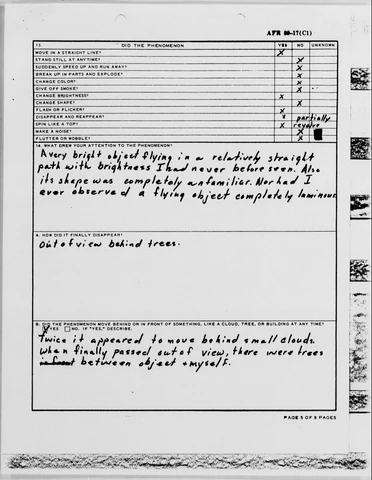 AFR 80-17(C1)
13. DID THE PHENOMENON YES NO UNKNOWN
MOVE IN A STRAIGHT LINE? X
STAND STILL AT ANYTIME? X
SUDDENLY SPEED UP AND RUN AWAY? X
BREAK UP IN PARTS AND EXPLODE? X
CHANGE COLOR? X
GIVE OFF SMOKE? X
CHANGE BRIGHTNESS? X
CHANGE SHAPE? X
FLASH OR FLICKER? X
DISAPPEAR AND REAPPEAR? X partially
SPIN LIKE A TOP? X revolve
MAKE A NOISE? X
FLUTTER OR WOBBLE? X
14. WHAT DREW YOUR ATTENTION TO THE PHENOMENON?
A very bright object flying in a relatively straight
path with brightness I had never before seen. Also
its shape was completely unfamiliar. Nor had I
ever observed a flying object completely luminous.
A. HOW DID IT FINALLY DISAPPEAR?
Out of view behind trees.
B. DID THE PHENOMENON MOVE BEHIND OR IN FRONT OF SOMETHING, LIKE A CLOUD, TREE, OR BUILDING AT ANY TIME?
X YES NO. IF "YES," DESCRIBE.
Twice it appeared to move behind small clouds.
When finally passed out of view, there were trees
in front between object + myself.
PAGE 5 OF 9 PAGES